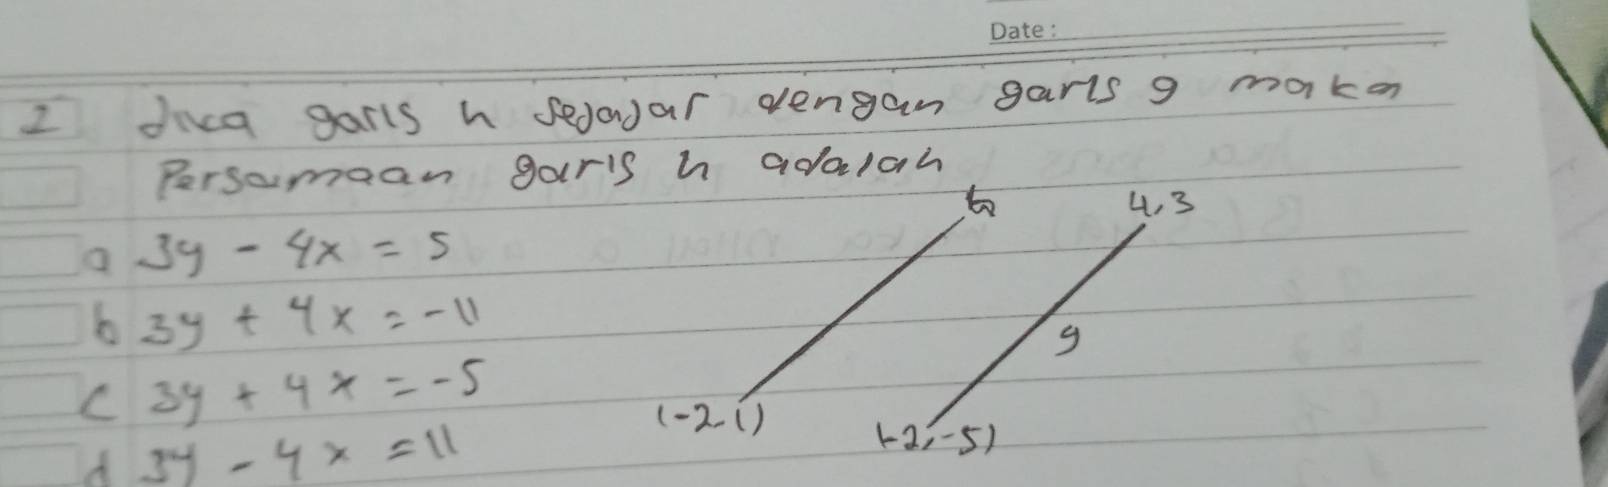 Date:
2 Jika garis h sejajar dengan garis g maka
Persamaan garis h adalah
h
4,3
a 3y - 4x = 5
b 3y + 4x = -11
g
c 3y + 4x = -5
(-2,1)
(-2,-5)
d 3y - 4x = 11